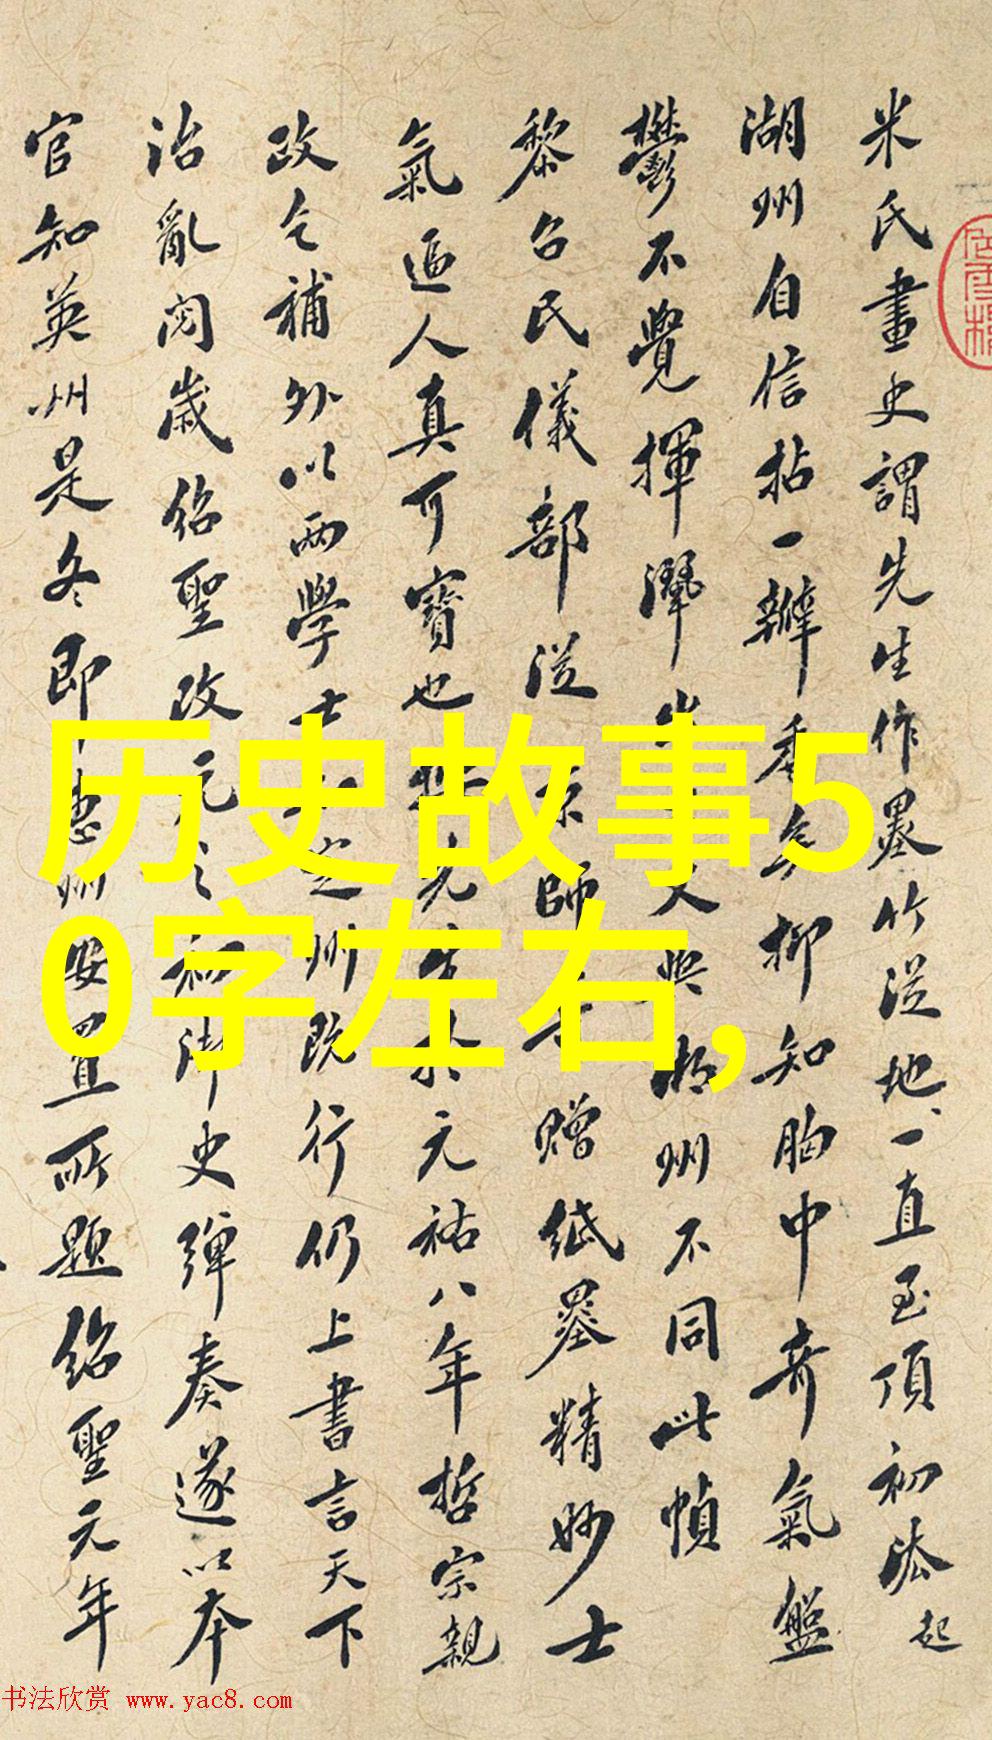 米氏畫史謂先生作墨竹從地一直至頂初法起
湖州自信拈一瓣香抑知胸中奇氣盤
鬱不覺揮灑出又與湖州不同此幀
黎召民儀部從京師贈紙墨精妙士
氣逼人真可寶也先生於元祐八年哲宗親
政乞補外以兩學士定州既行仍上書言天下
治亂閱歲紹聖改元之初御史彈奏遂以本
官知英州是冬即惠州安置所題紹聖元年
历史故事5
0字左右,
书法欣赏 www.yac8.com